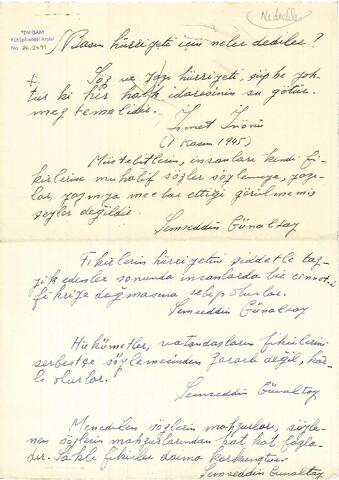 Nedediler
TDV İSAM
Kütüphanesi Arşivi
No 2İ.2691
Basın hürriyeti için neler dediler?
Söz ve yazı hürriyeti, şüphe yok-
tur ki her halk idaresinin su götür-
mez temelidir.
İsmet İnönü
(1 Kasım 1945)
Müstebitlerin, insanları kendi fi-
kirlerine muhalif sözler söylemeye, yazı-
lar yazmıya mecbur ettiği görülmemiş
şeyler değildir.
Şemseddin Günaltay
Fikirlerin hürriyetini şiddetle taz-
yik edenler sonunda insanlarda bir cinnet-i
fikriye doğmasına sebep olurlar.
Şemseddin Günaltay
Hükûmetler, vatandaşların fikirlerini
serbestçe söylemesinden zararlı değil, kâr-
lı olurlar.
Şemseddin Günaltay
Menedilen sözlerin mahzurları, söyle-
nen sözlerin mahzurlarından kat kat fazla-
dır. Saklı fikirler daima korkunçtur.
Şemseddin Günaltay